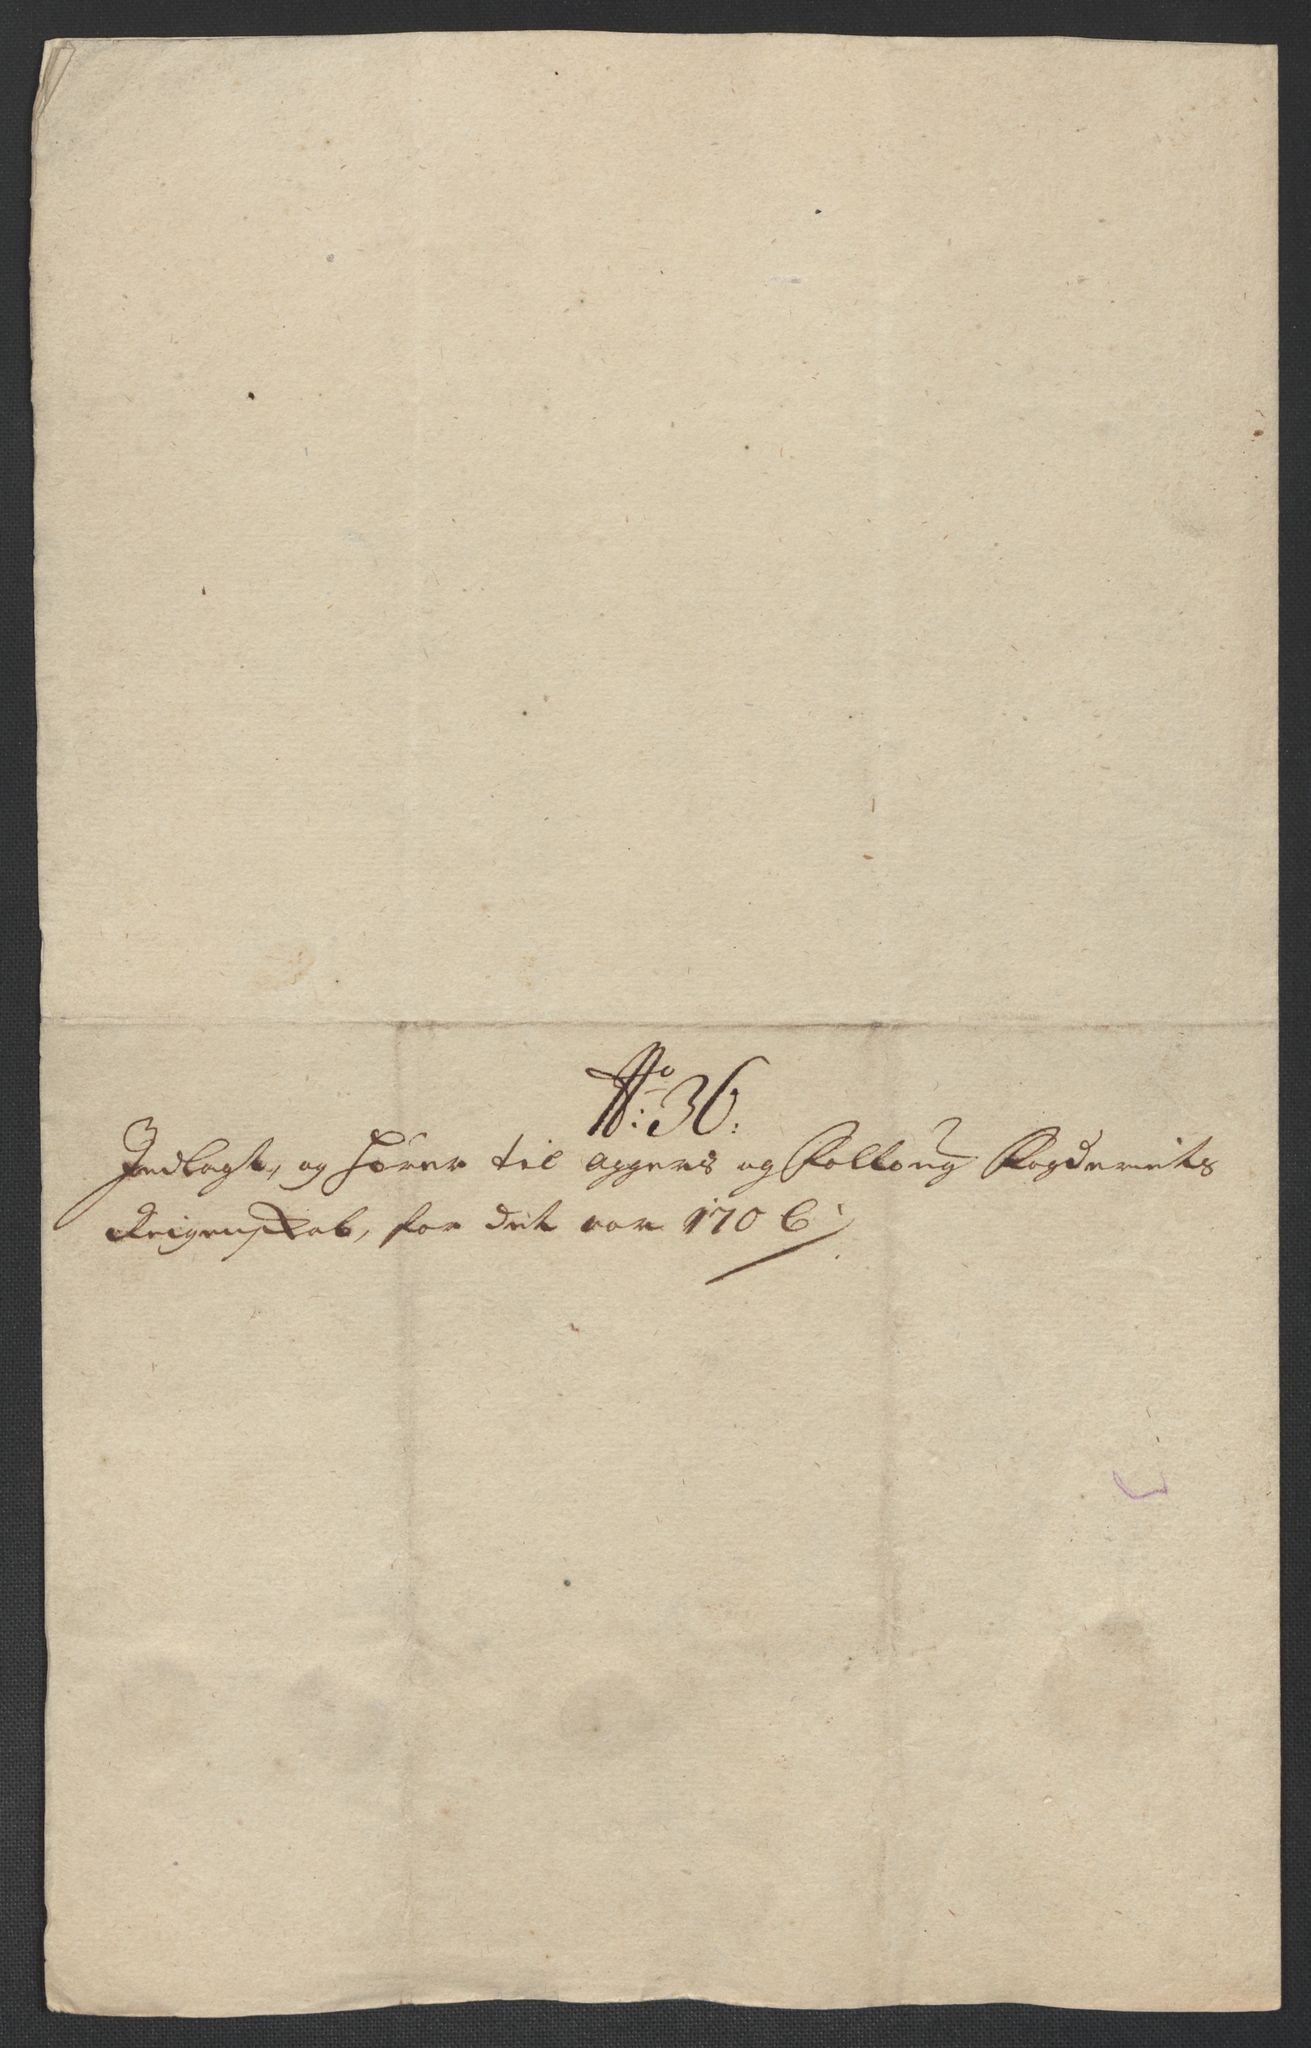 No: 36:
Indlagt, og hører til Aggers og Folloug Fogderiets
Reigenskab, for det aar 1706